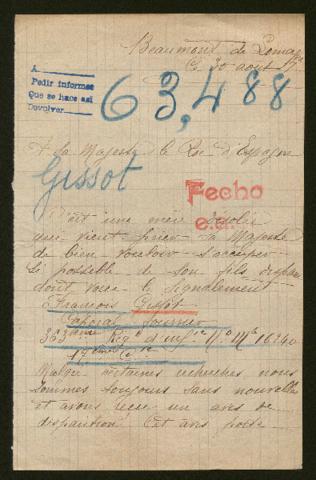 Beaumont de Lomagne
le 30 août 17
A
Pedir informes
Que se hace así
Devolver
63,488
A sa Majesté le Roi d'Espagne
Gissot
Fecho
C'est une mère désolée
qui vient prier sa Majesté
de bien vouloir s'occuper
si possible de son fils
dont voici le signalement
François Gissot
Caporal fourrier
363ème Reg d'inf
17ème Cie
Malgré certaines recherches nous
sommes toujours sans nouvelle
et avons reçu un avis de
disparition. Cet avis porte